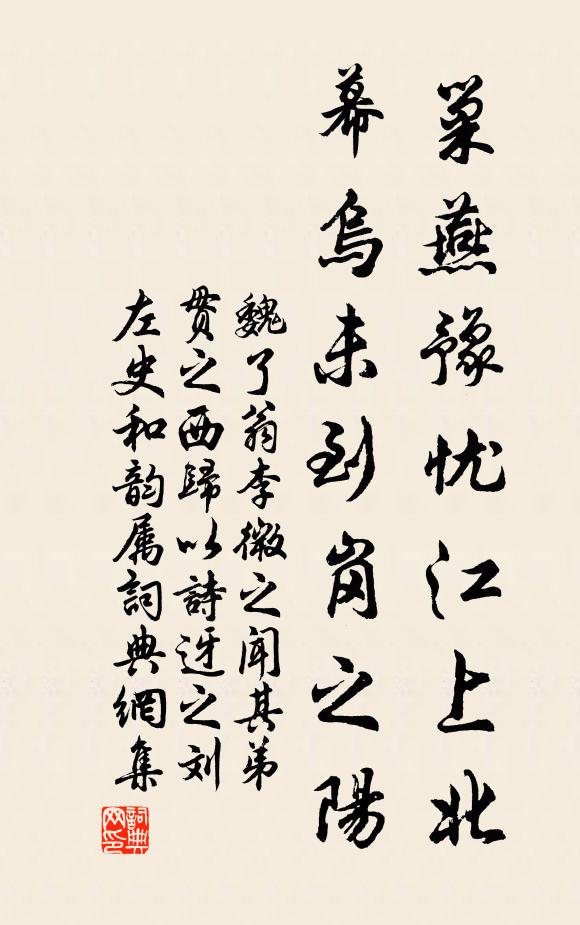 巢燕豫忧江上北
幕乌未到岗之陽
魏了翁李微之闻其弟
贯之西歸以詩迓之刘
左史和韵属詞典網集
詞典网印